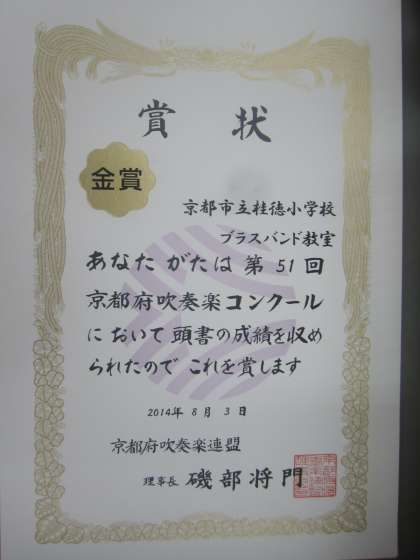 賞状
金賞
京都市立桂徳小学校
ブラスバンド教室
あなたがたは第51回
京都府吹奏楽コンクール
において頭書の成績を収め
られたのでこれを賞します
2014年8月3日
京都府吹奏楽連盟
理事長 磯部将門